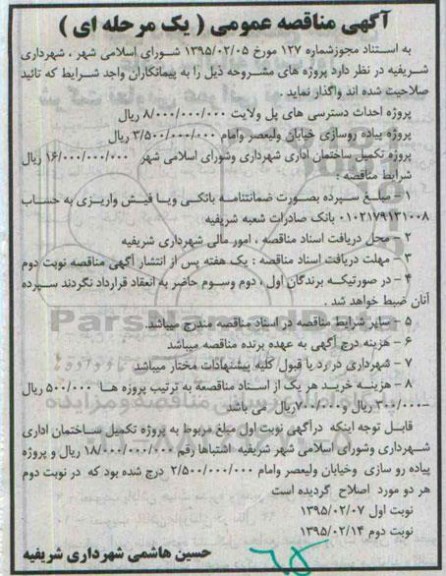 آگهی مناقصه عمومی ( یک مرحله ای )
به استناد مجوزشماره ۱۲۷ مورخ ۱۳۹۵/۰۲/۰۵ شورای اسلامی شهر ، شهرداری
شریفیه در نظر دارد پروژه های مشروحه ذیل را به پیمانکاران واجد شرایط که تائید
صلاحیت شده اند واگذار نماید .
پروژه احداث دسترسی های پل ولایت ۸/۰۰۰/۰۰۰/۰۰۰ ریال
پروژه پیاده روسازی خیابان ولیعصر وامام ۳/۵۰۰/۰۰۰/۰۰۰ ریال
پروژه تکمیل ساختمان اداری شهرداری وشورای اسلامی شهر ۱۶/۰۰۰/۰۰۰/۰۰۰ ریال
شرایط مناقصه :
۱- مبلغ سپرده بصورت ضمانتنامه بانکی ویا فیش واریزی به حساب
۰۱۰۲۱۷۹۱۳۱۰۰۸ بانک صادرات شعبه شریفیه
۲ - محل دریافت اسناد مناقصه ، امور مالی شهرداری شریفیه
۳ - مهلت دریافت اسناد مناقصه : یک هفته پس از انتشار آگهی مناقصه نوبت دوم
۴ - در صورتیکه برندگان اول ، دوم وسوم حاضر به انعقاد قرارداد نگردند سپرده
آنان ضبط خواهد شد .
۵ - سایر شرایط مناقصه در اسناد مناقصه مندرج میباشد.
۶ - هزینه درج آگهی به عهده برنده مناقصه میباشد
۷ - شهرداری در رد یا قبول کلیه پیشنهادات مختار میباشد
۸ - هزینه خرید هر یک از اسناد مناقصه به ترتیب پروژه ها ۵۰۰/۰۰۰ ریال
ریال می باشد.
قابل توجه اینکه درآگهی نوبت اول مبلغ مربوط به پروژه تکمیل ساختمان اداری
شهرداری وشورای اسلامی شهر شریفیه اشتباها رقم ۱۸/۰۰۰/۰۰۰/۰۰۰ ریال و پروژه
پیاده رو سازی وخیابان ولیعصر وامام ۲/۵۰۰/۰۰۰/۰۰۰ درج شده بود که در نوبت دوم
هر دو مورد اصلاح گردیده است
نوبت اول ۱۳۹۵/۰۲/۰۷
نوبت دوم ۱۳۹۵/۰۲/۱۴
حسین هاشمی شهرداری شریفیه
۶۵
ParsNamadData